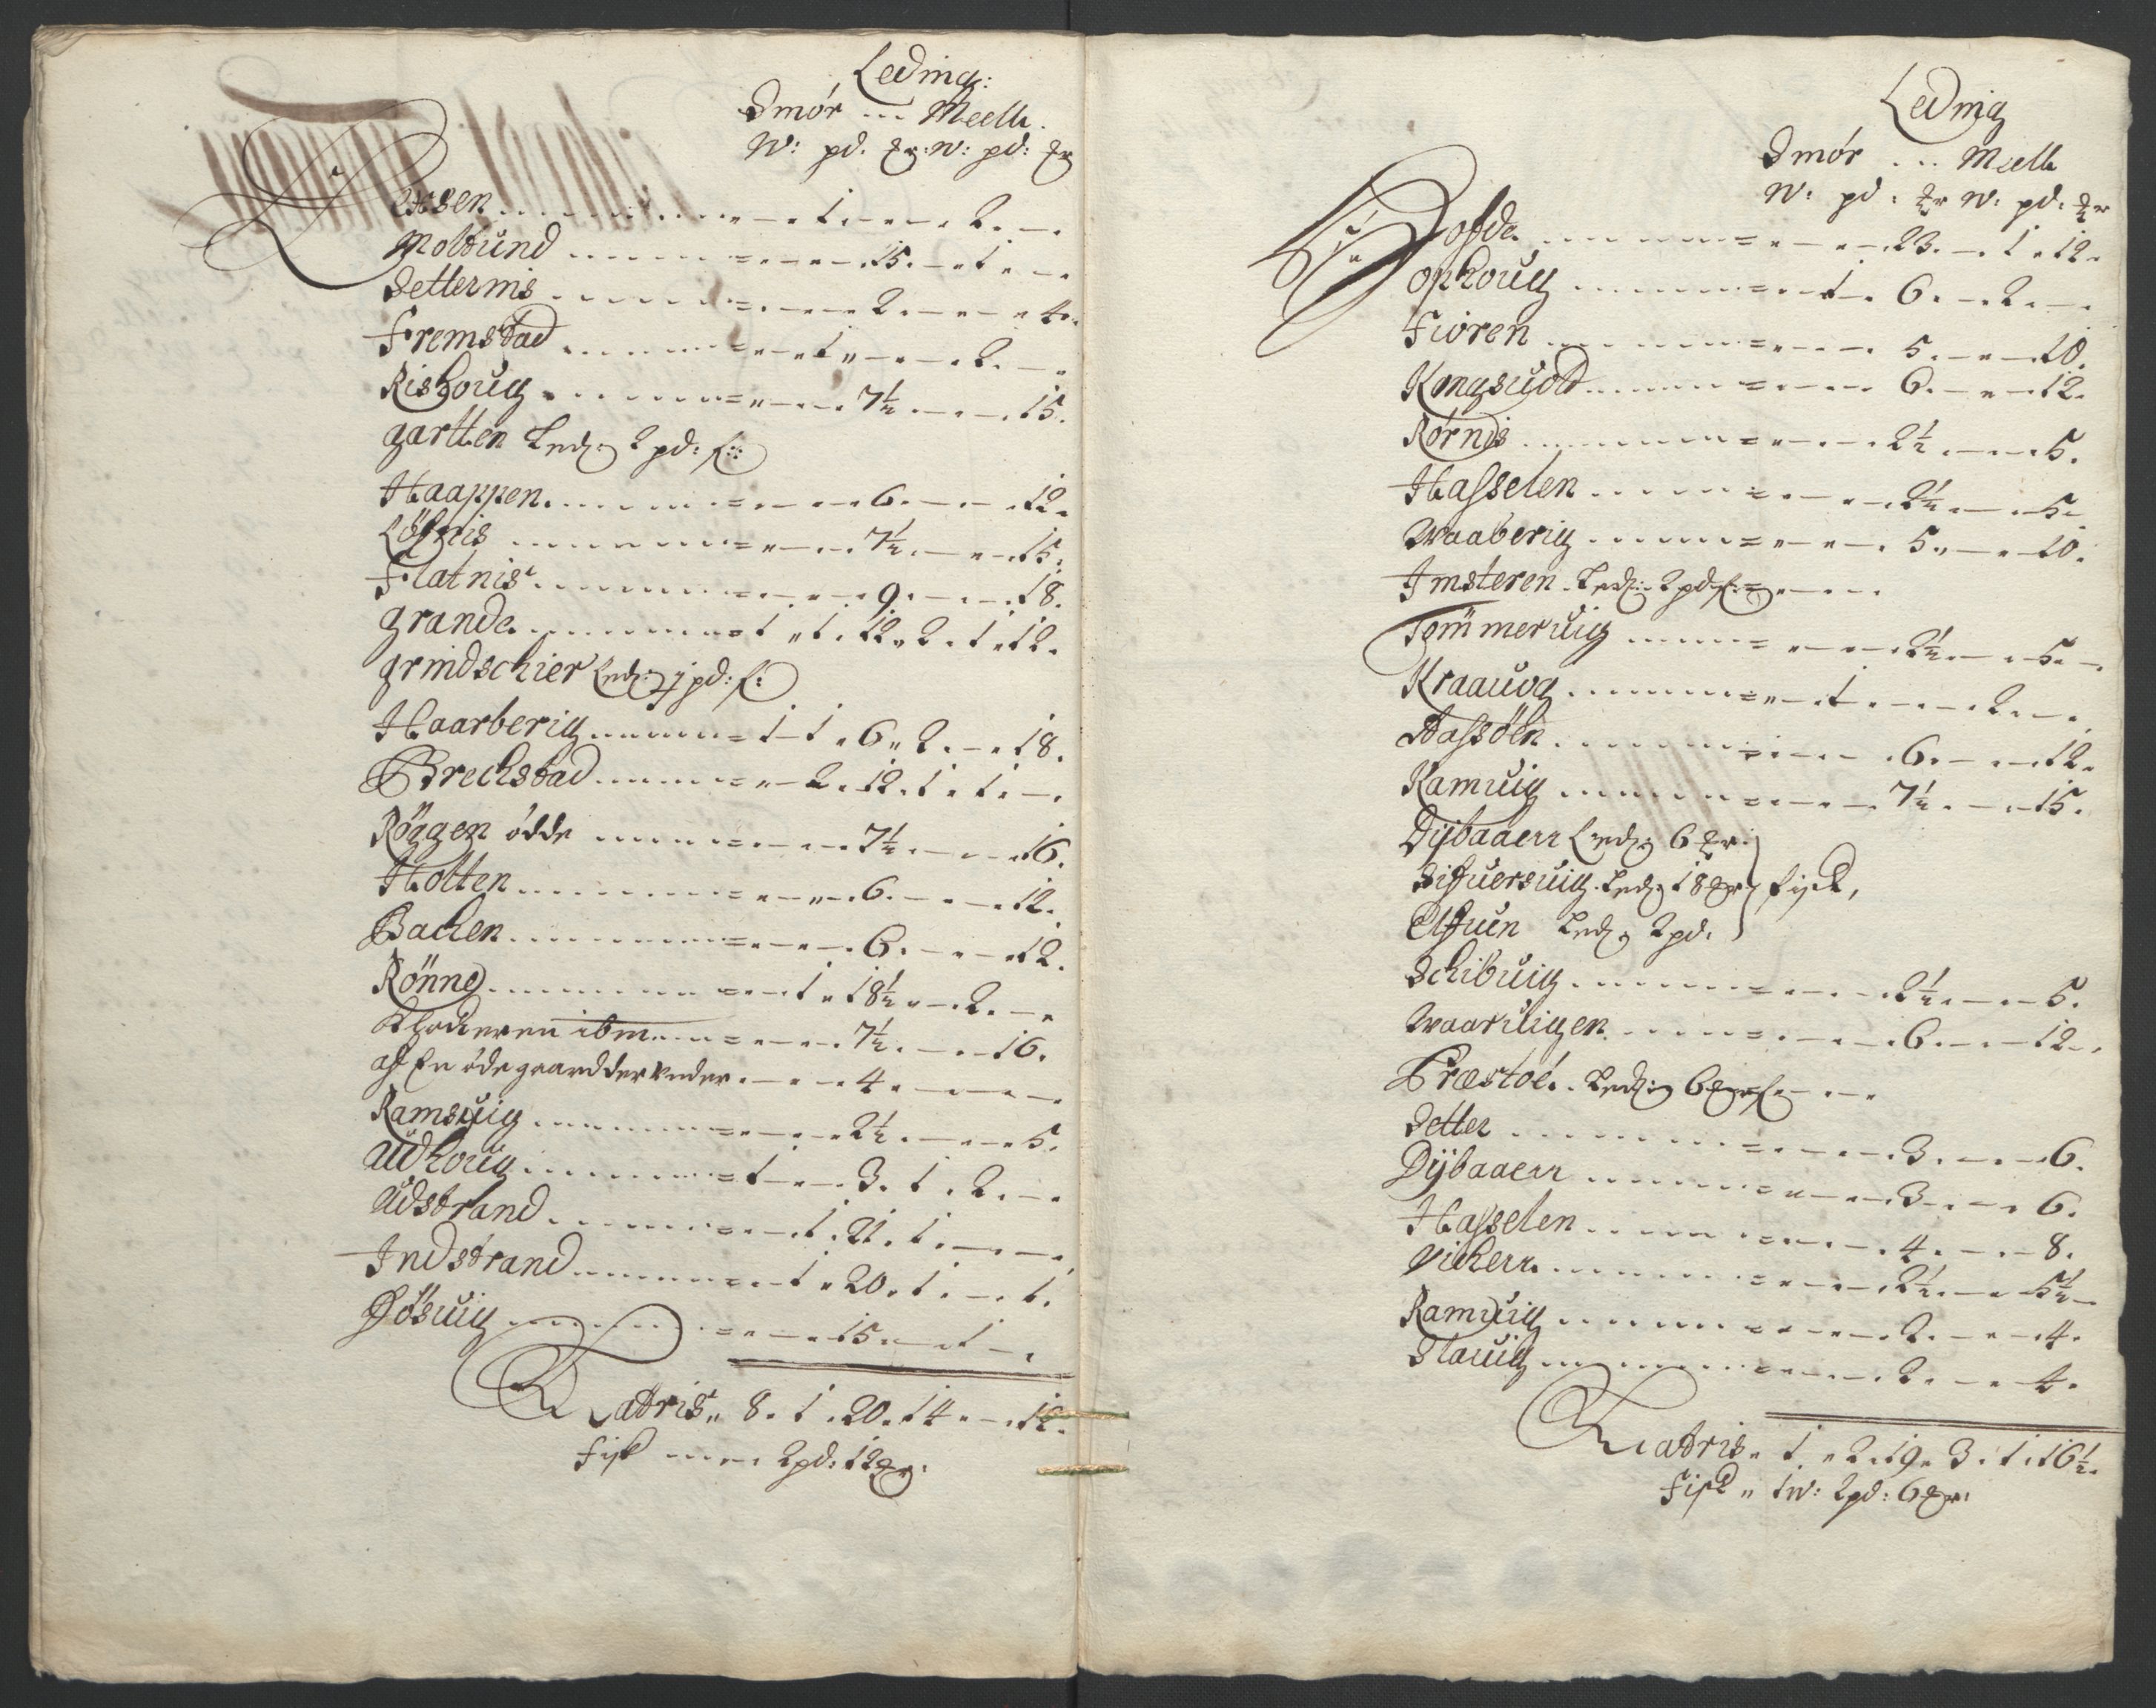 Leding:
Smör ... Meell.
W: pd. : W: pd:
Øxsen - - 1 - - - 2 - -
Moldsund - - - 15 - 1 - -
Setternis - - - 2 - - - 4
Fremstad - - 1 - - - 2 - -
Rishoug - - - 7½ - - - 15.
gartten Led: 2 pd: f:
Haappen - - - 6 - - - 12
Löfnis - - - 7½ - - - 15:
Flatnis - - - 9 - - - 18.
grande - 1 - 1 - 12 - 2 - 1 - 12
grindschier Led: 1 pd: f:
Haarberig - 1 - 1 - 6 - 2 - - 18.
Brechstad - - 2 - 12 - 1 - 1 - -
Röggen ödde - - - 7½ - - - 16.
Holten - - - 6 - - - 12.
Bachen - - - 6 - - - 12.
Rönne - - 1 - 18½ - 2 - -
Klocheren ibm - - - 7½ - - - 16.
af En öde gaard der under - - - 4 - - -
Ramsuig - - - 2½ - - - 5.
Udhoug - 1 - - 3 - 1 - 2 - -
Udstrand - - 1 - 21 - 1 - - -
Indstrand - - 1 - 20 - 1 - - 1.
Døsuig - - - 15 - - 1 - -
Latris " 8 - 1 - 20 - 14 - - 12.
Fisk - - 2 pd: 12
Leding
Smör ... Meell
W: pd: W: pd:
Hofde - - - 23 - - 1 - 12
Ophoug - - 1 - 6 - - 2 - -
Fioren - - - 5 - - - 10.
Kongsuold - - - 6 - - - 12.
Rörnis - - - 2½ - - - 5.
Hasselen - - - 2½ - - - 5
Waaberig - - - 5 - - - 10.
Imsteren Led: 2 pd f:
Tömmeruig - - - 2½ - - - 5
Kraauog - - 1 - - - 2 - -
Aassölen - - - 6 - - - 12
Ramuig - - - 7½ - - - 15.
Dijbaaerr Led: 6
Sifuersuig Led: 18 fisch,
Elfuen Led: 2 pd.
Schibuig - - - 2½ - - - 5.
Waaruigen - - - 6 - - - 12
Præstöe Led: 6
Setter - - - 3 - - - 6.
Dijbaaerr - - - 3 - - - 6.
Hasselen - - - 4 - - - 8.
Vicherr - - - 2½ - - - 5½
Ramuig - - - 2 - - - 4.
Slauig - - - 2 - - - 4.
Latris " 1 - 2 - 19 - 3 - 1 - 16½
Fisk " 1 W: 2 pd: 6